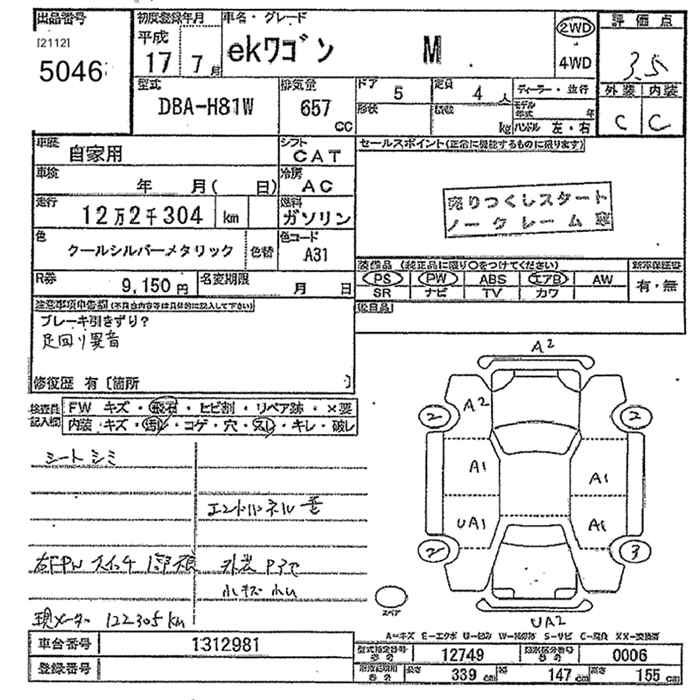 出品番号 初度登録年月 車名・グレード 2WD 評価点
[2112] 平成 ekワゴン M 3.5
5046 17 7月 4WD 外装 内装
型式 排気量 ドア 5 定員 4人 ディーラー・並行
DBA-H81W 657 CC 形状 積数 kg モデル年式 年 C C
ハンドル 左・右
車歴 自家用 シフト CAT セールスポイント(正常に機能するものに限ります)
車検 年 月( 日) 冷房 AC
走行 12万2千304 km 燃料 ガソリン 売りつくしスタート
ノークレーム
色 クールシルバーメタリック 色替 色コード A31
R券 9,150円 名変期限 月 日
装備品 (純正品に限り○をつけてください) 新車保証書
PS PW ABS エアB AW 有・無
SR ナビ TV カワ
注意事項申告欄(不具合内容等は具体的に記入して下さい)
ブレーキ引きずり?
足回り異音
修復歴 有 [箇所 ]
検査員 FW キズ・飛石・ヒビ割・リペア跡・×要
記入欄 内装 キズ・汚レ・コゲ・穴・スレ・キレ・破レ
シートシミ
エンドパネル
右FPWスイッチ1部
小キズ 小凹
現メーター 122305km
A2
A2
2 2
A1 A1
UA1 A1
2 3
スペア
UA2
A=キズ E=エクボ U=凹み W=補修跡 S=サビ C=腐食 XX=交換済
車台番号 1312981 型式指定番号 12749 類別区分番号 0006
登録番号 長さ 339 cm 幅 147 cm 高さ 155 cm